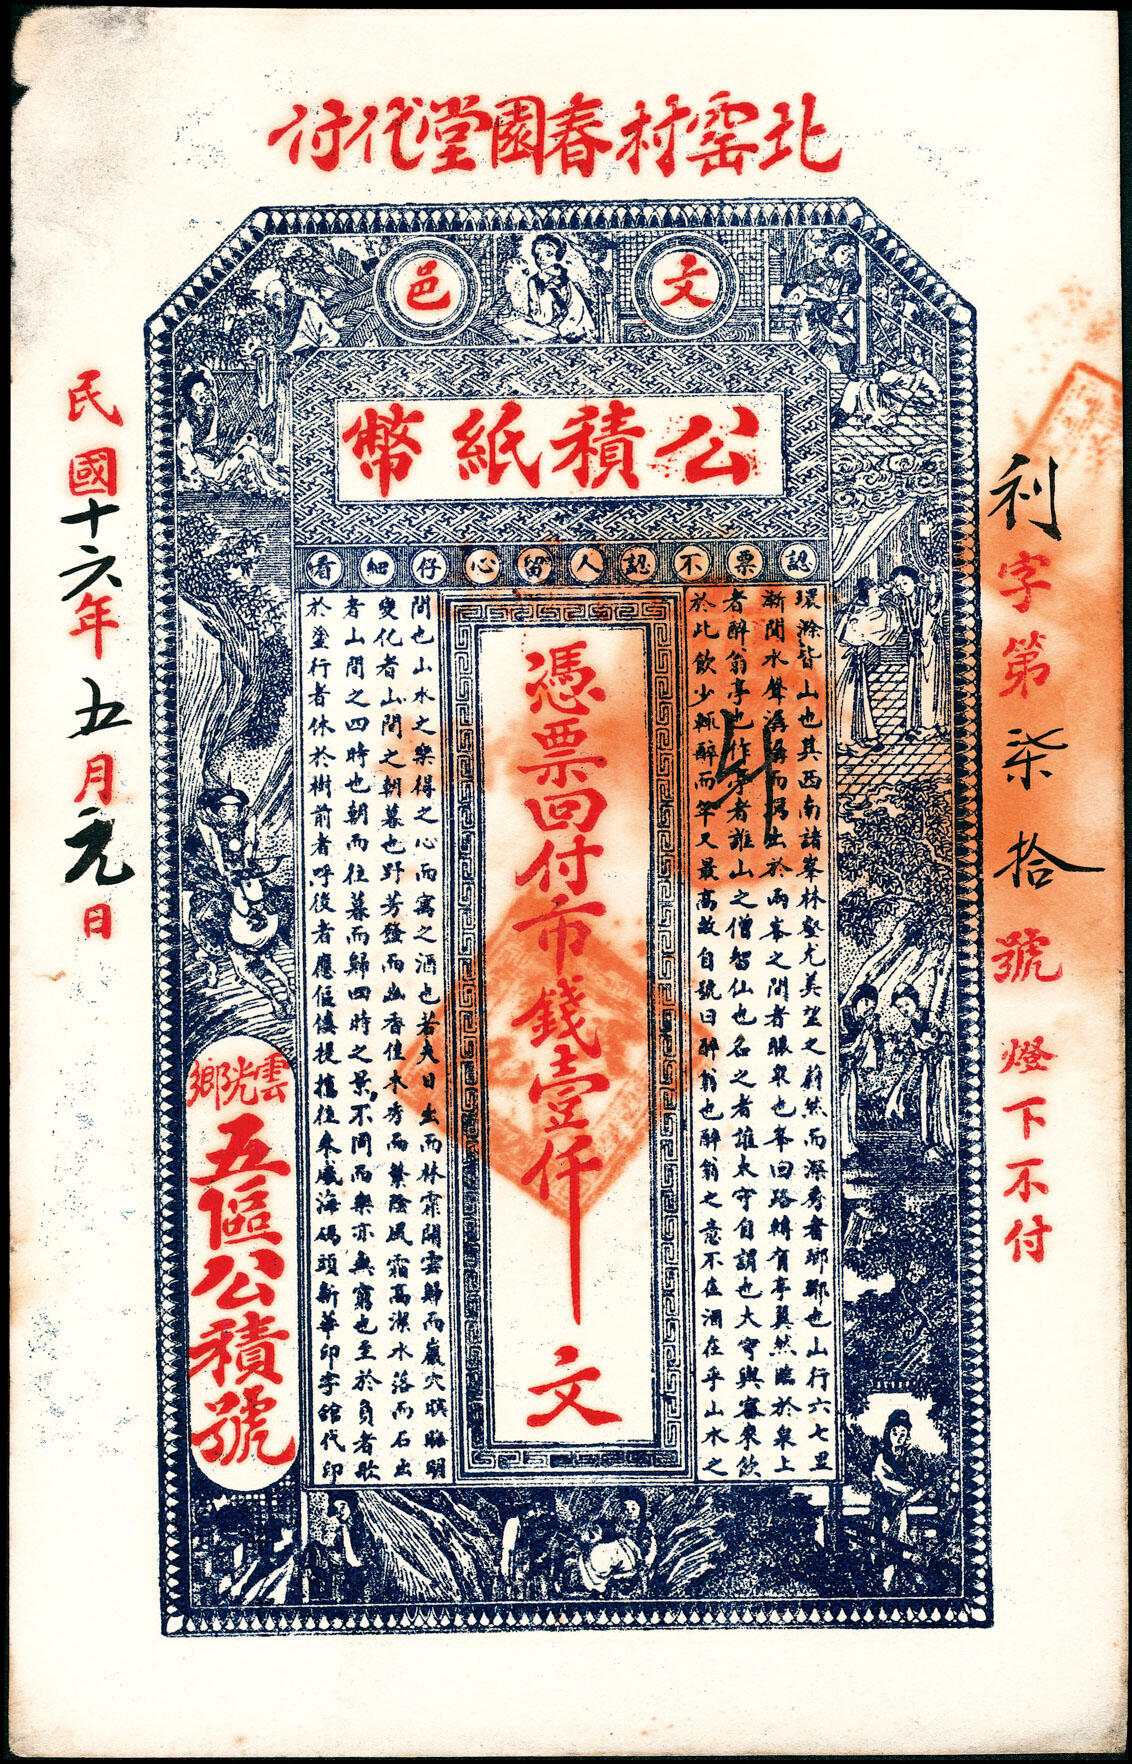 北窑村春園堂代付
文邑
公積紙幣
認票不認人留心仔細看
利字第柒拾號 燈下不付
環滁皆山也其西南諸峯林壑尤美望之蔚然而深秀者瑯琊也山行六七里
漸聞水聲潺潺而瀉出於兩峯之間者釀泉也峯回路轉有亭翼然臨於泉上
者醉翁亭也作亭者誰山之僧智仙也名之者誰太守自謂也太守與客來飲
於此飲少輒醉而年又最高故自號曰醉翁也醉翁之意不在酒在乎山水之
憑票回付市錢壹仟文
間也山水之樂得之心而寓之酒也若夫日出而林霏開雲歸而巖穴暝晦明
變化者山間之朝暮也野芳發而幽香佳木秀而繁陰風霜高潔水落而石出
者山間之四時也朝而往暮而歸四時之景不同而樂亦無窮也至於負者歌
於塗行者休於樹前者呼後者應傴僂提攜往來威海碼頭新華印字館代印
雲光鄉
五區公積號
民國十六年五月元日